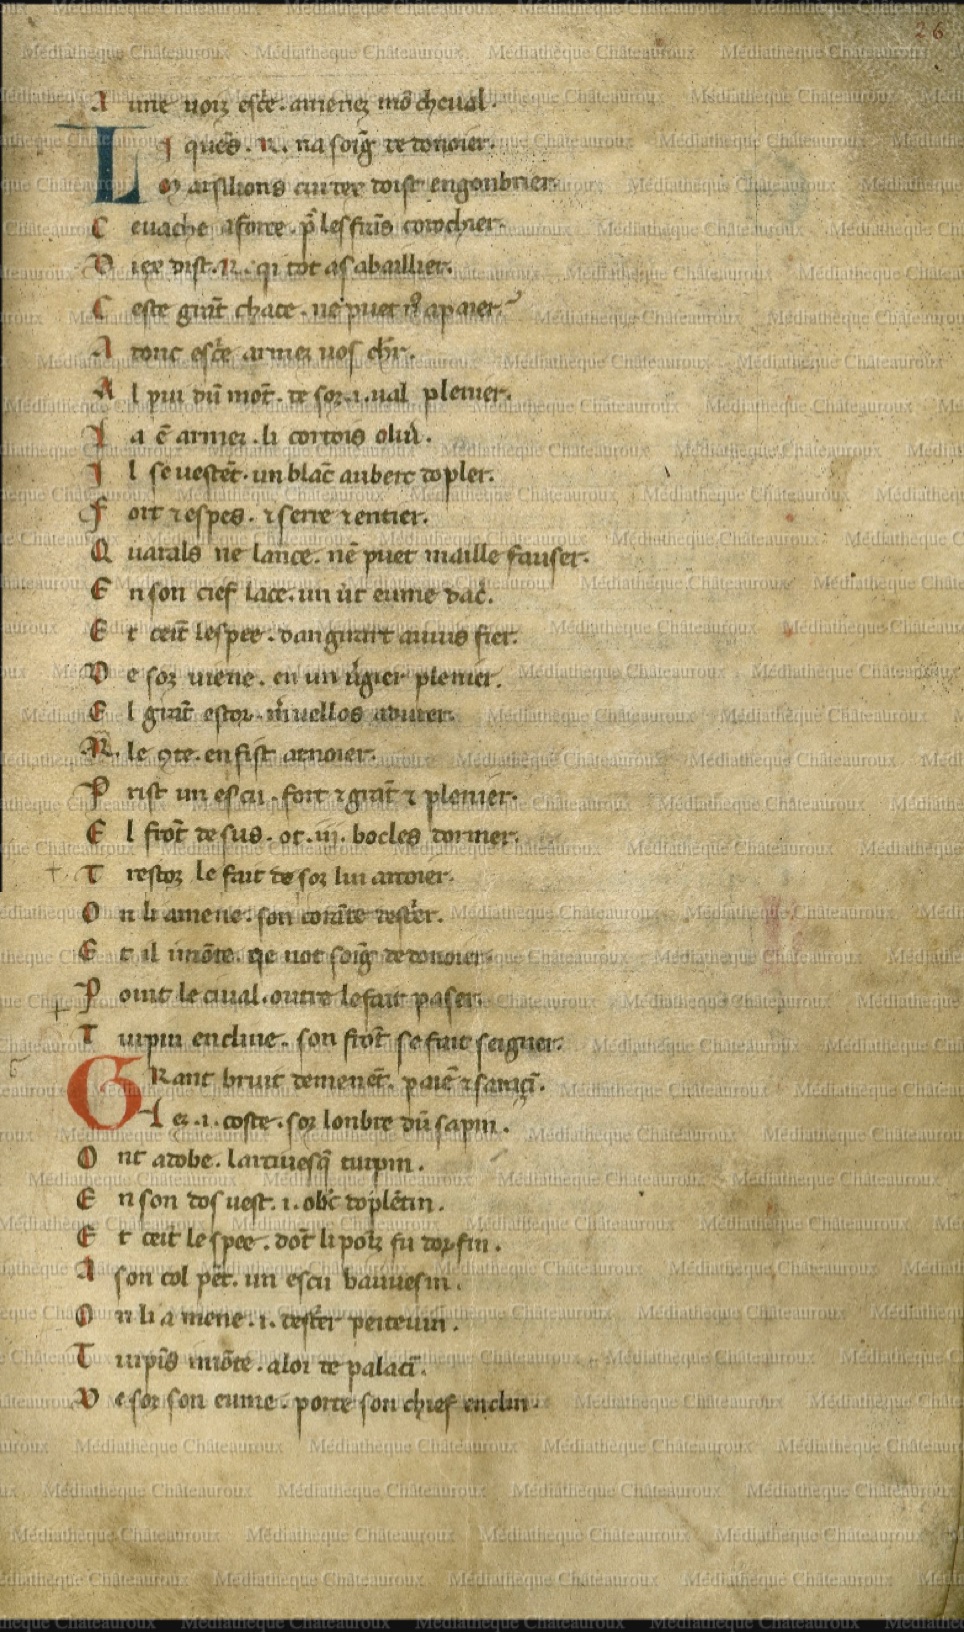 26
A une uoiz esc̃e . amenez mõ cheual .
L J quẽs . R . na soig̃ de donoier .
M arsilions cui dex doist engonbrier
C euache a force . p̃ les frãs corochier .
D iex dist . R . qi tot as a baillier .
C este grãt chace . ne puet
A donc esc̃e armez uos chr̃ .
A l pui dũ mõt . de soz . i . ual plenier .
J a ẽ armez . li cortois oliũ .
J l se uestẽt . un blãc auberc dopler .
F ort ⁊ espes . ⁊ serre ⁊ entier .
Q uarals ne lance . nẽ puet maille fauser .
E n son cief lace . un u̇t eume dac̃ .
E t ceĩt lespee .
D e soz uiene . en un ũgier plenier .
E l grãt estor . m̃uellos adurer .
R . le 9te . en fist
P rist un escu . fort ⁊ grãt ⁊ plenier .
E l frõt desus . ot . iii . bocles dormer .
T restoz le fait de soz lui
O n li amene . son corãt destẽr .
E t il mõte . qe not soig̃ de donoier .
P oint le ciual . outre le fait paser .
T urpin encline . son frõt se fait seigner .
G Rant bruit demenẽt . paiẽ ⁊ saraçĩ .
L ez . i . coste . soz lonbre dũ sapin .
O nt adobe . larciuesq̃ turpin .
E n son dos uest . i . obc̃ doplẽtin .
E t ceĩt le spee . dõt li poĩz fu dor fin .
A son col pẽt . un escu bauuesin .
O n li amene . i . destẽr peiteuin .
T urpĩs mõte . a loi de palacĩ .
D esoz son eume . porte son chief enclin .
Médiathèque Châteauroux